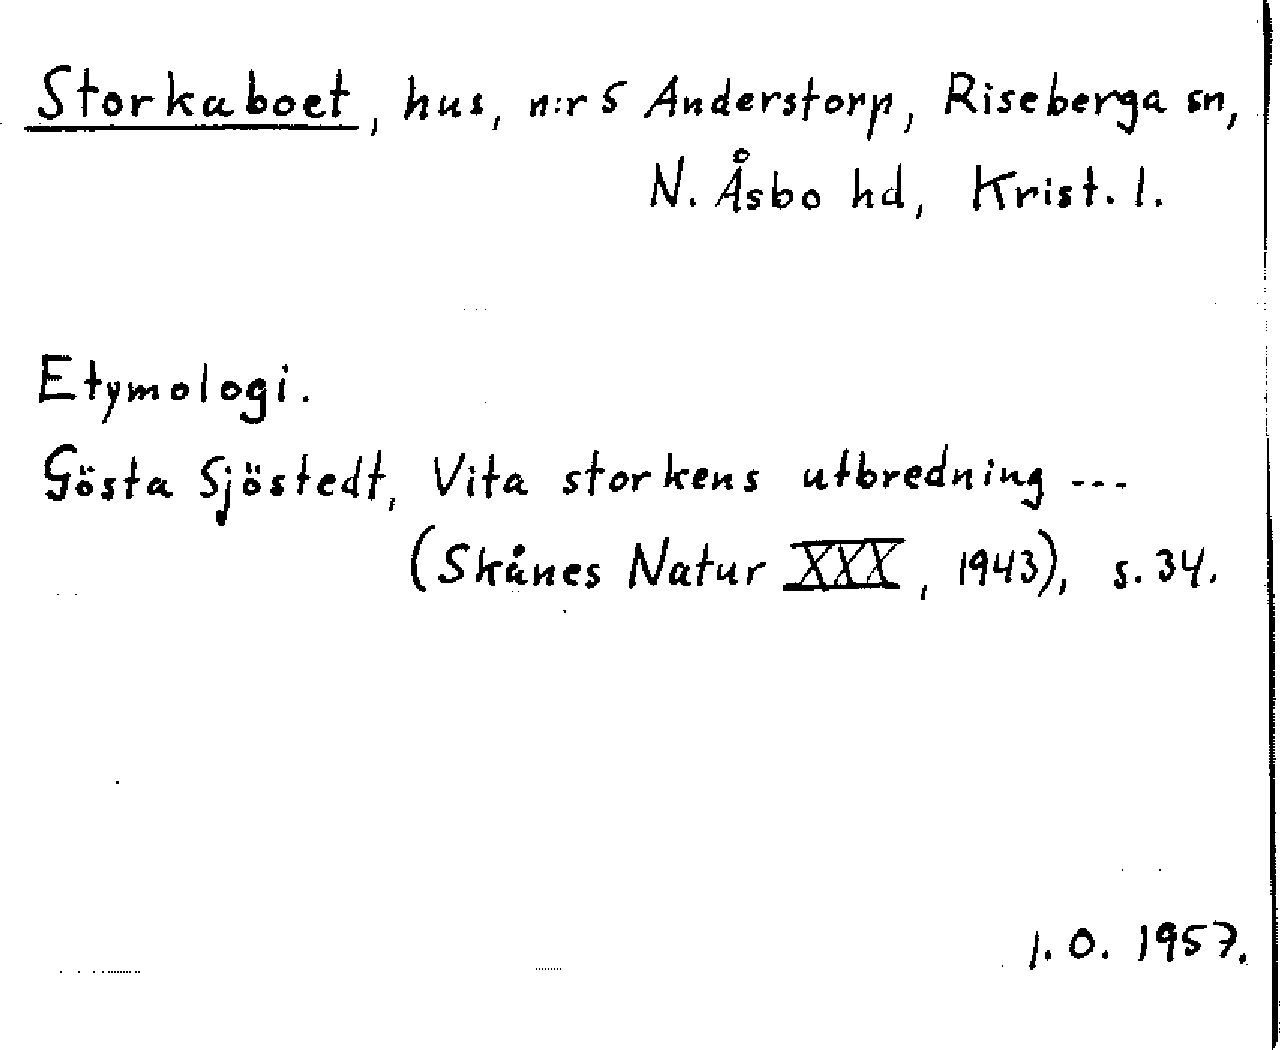 Storkaboet, hus, n:r 5 Anderstorp, Riseberga sn,
N. Åsbo hd, Krist. l.
Etymologi.
Gösta Sjöstedt, Vita storkens utbredning ---
(Skånes Natur XXX, 1943), s. 34.
I. O. 1957.